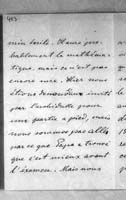 413
mir Sorile. Haure pro-
bablement le mathéma-
tique, mais ce n'est pas
encore sûr. Hier nous
étions demandeux invité
par l'archiduc pour
une partie à pied, mais
nous sommes pas allés
par ce que Papa a trouvé
que c'est mieux avant
l'examen. Mais nous